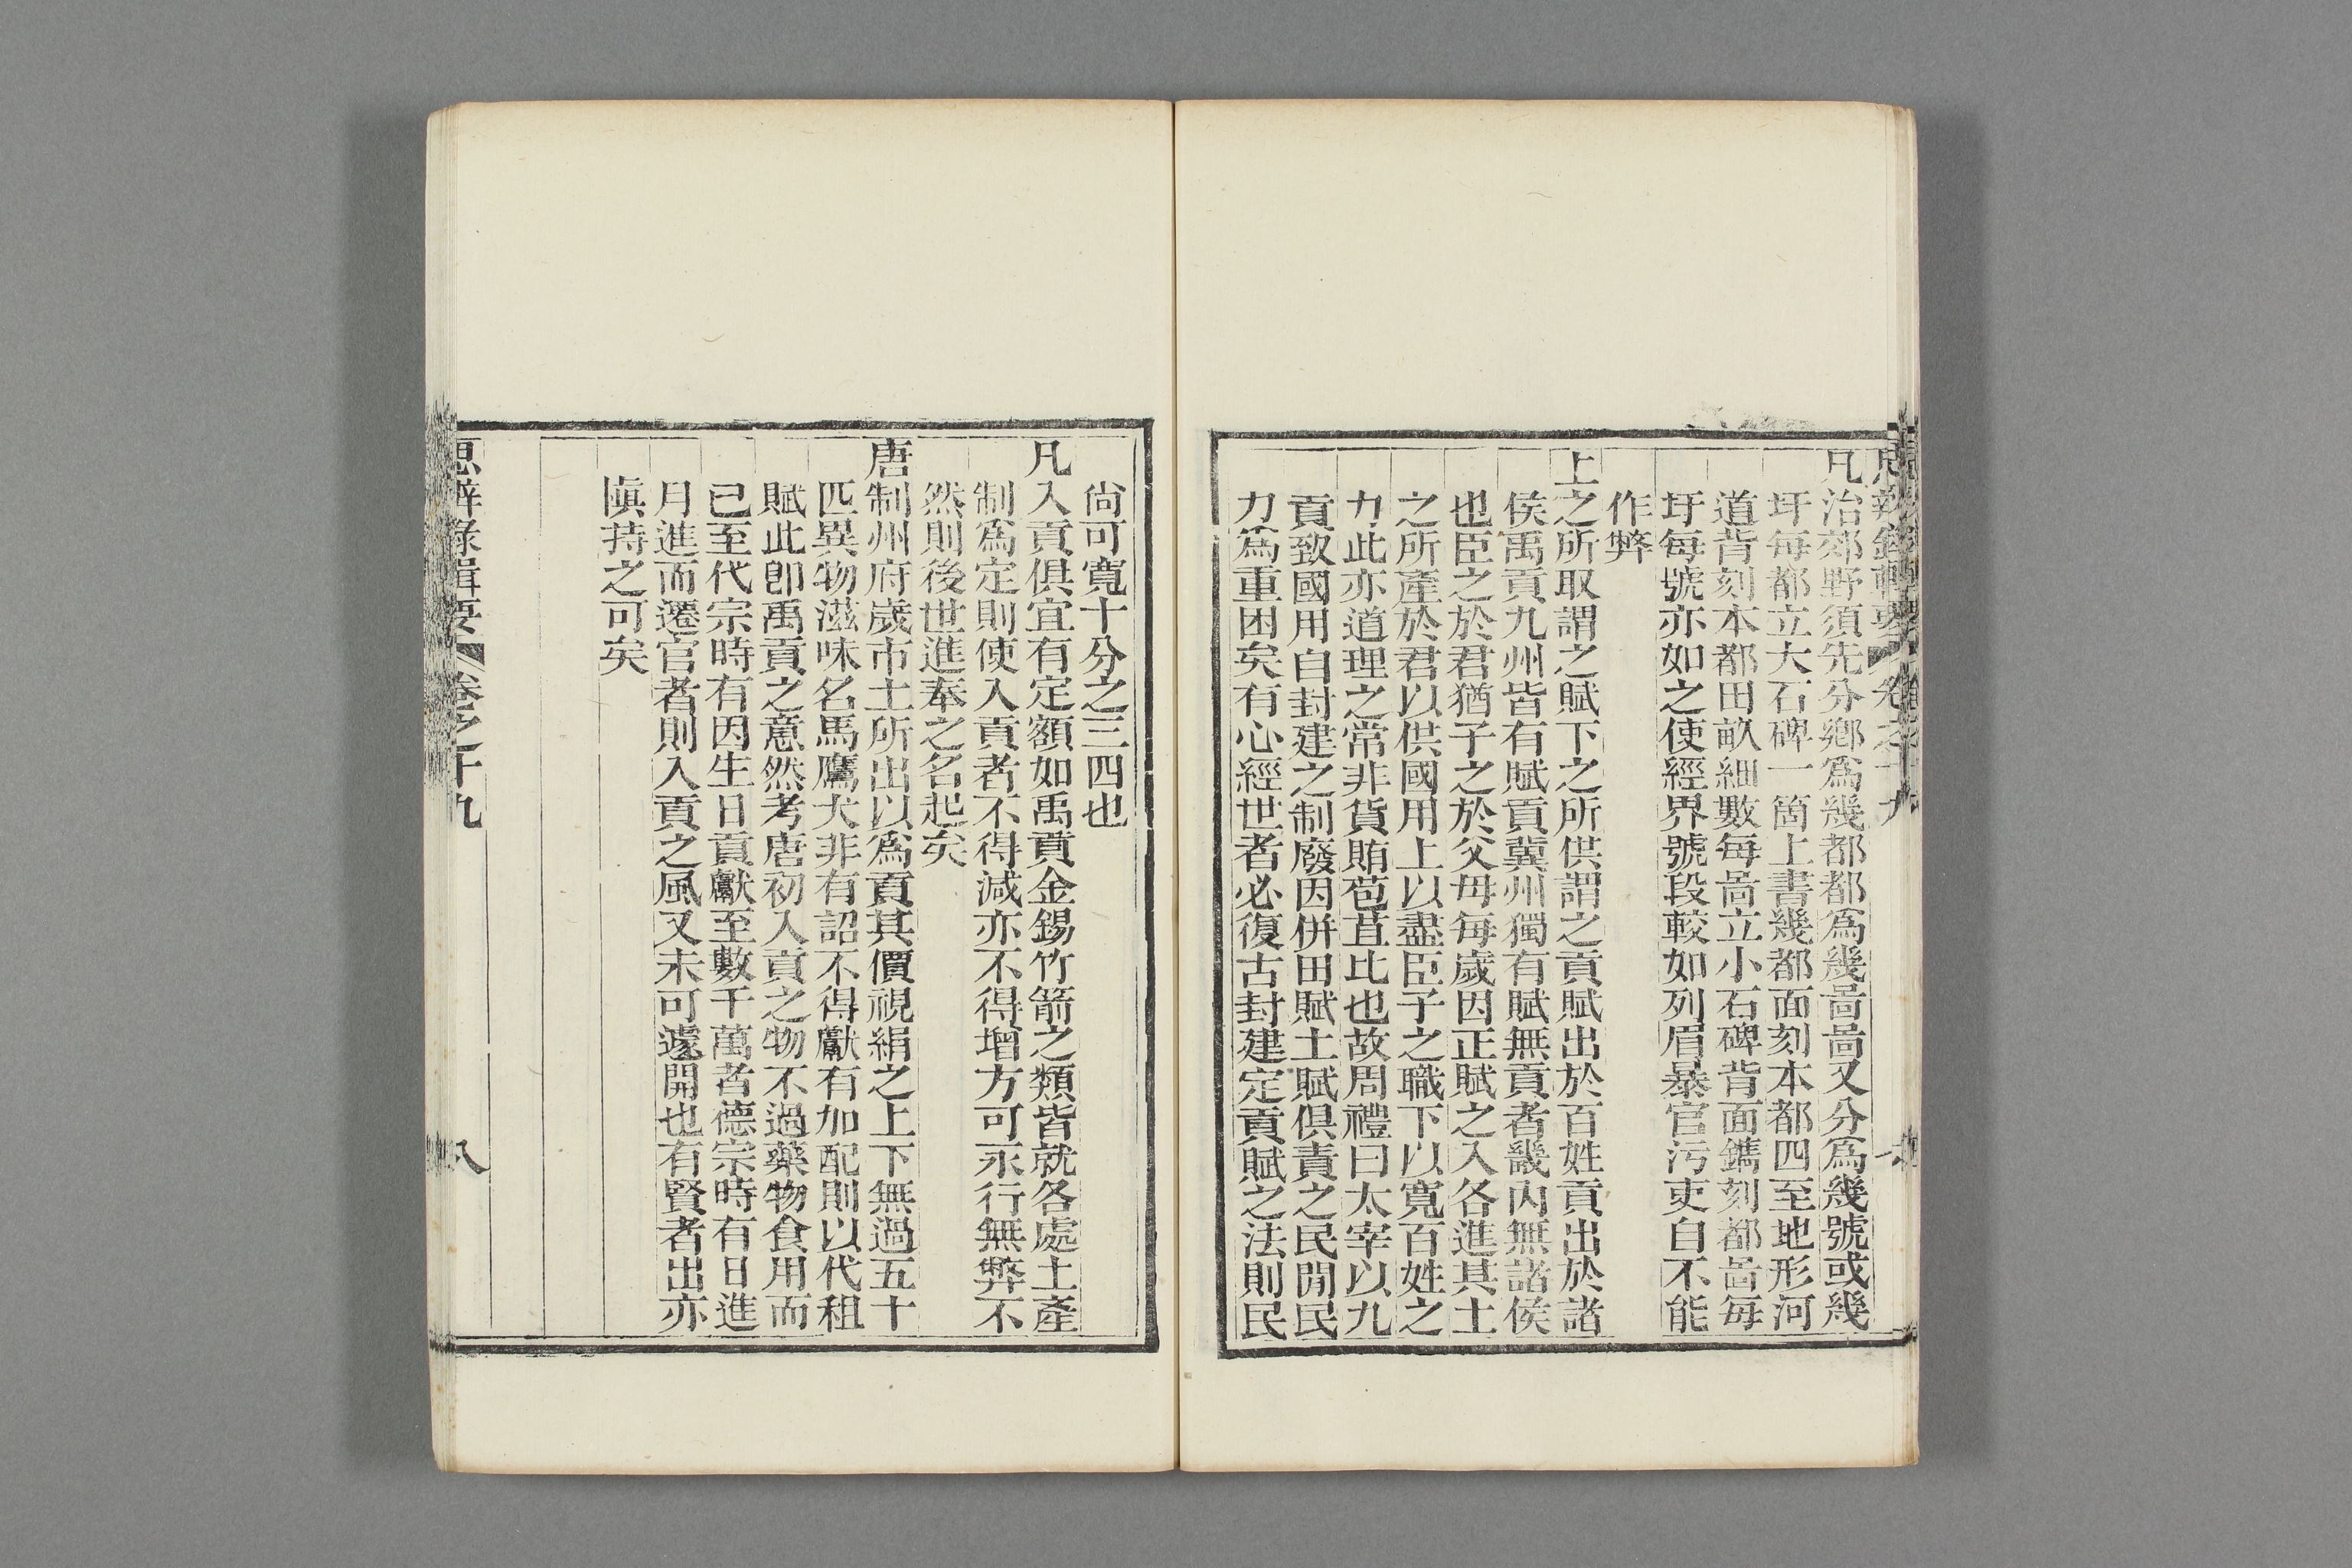 思辨錄輯要 卷之十九
凡治郊野須先分鄉爲幾都都爲幾啚啚又分爲幾號或幾
圩每都立大石碑一箇上書幾都面刻本都四至地形河
道背刻本都田畝細數每啚立小石碑背面鐫刻都啚每
圩每號亦如之使經界號段較如列眉暴官污吏自不能
作弊
上之所取謂之賦下之所供謂之貢賦出於百姓貢出於諸
侯禹貢九州皆有賦貢冀州獨有賦無貢者畿內無諸侯
也臣之於君猶子之於父毋每歲因正賦之入各進其土
之所產於君以供國用上以盡臣子之職下以寬百姓之
力此亦道理之常非貨賄苞苴比也故周禮曰太宰以九
貢致國用自封建之制廢因併田賦土賦俱責之民閒民
力爲重困矣有心經世者必復古封建定貢賦之法則民
尙可寬十分之三四也
凡入貢俱宜有定額如禹貢金錫竹箭之類皆就各處土產
制爲定則使入貢者不得減亦不得增方可永行無弊不
然則後世進奉之名起矣
唐制州府歲市土所出以爲貢其價視絹之上下無過五十
匹異物滋味名馬鷹犬非有詔不得獻有加配則以代租
賦此卽禹貢之意然考唐初入貢之物不過藥物食用而
已至代宗時有因生日貢獻至數千萬者德宗時有日進
月進而遷官者則入貢之風又未可遽開也有賢者出亦
愼持之可矣
思辨錄輯要 卷之十九 八